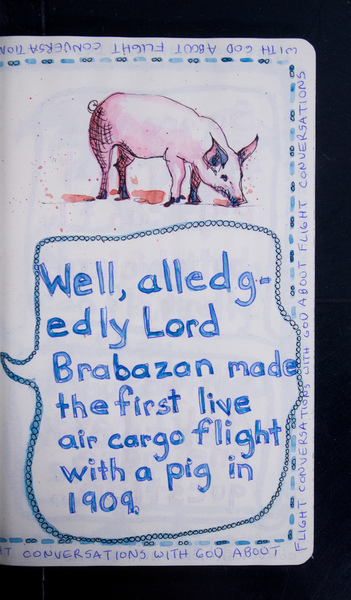 WITH GOD ABOUT FLIGHT CONVERSATION
FLIGHT CONVERSATIONS WITH GOD ABOUT FLIGHT CONVERSATIONS
Well, alledg-
edly Lord
Brabazan made
the first live
air cargo flight
with a pig in
1909.
HT CONVERSATIONS WITH GOD ABOUT